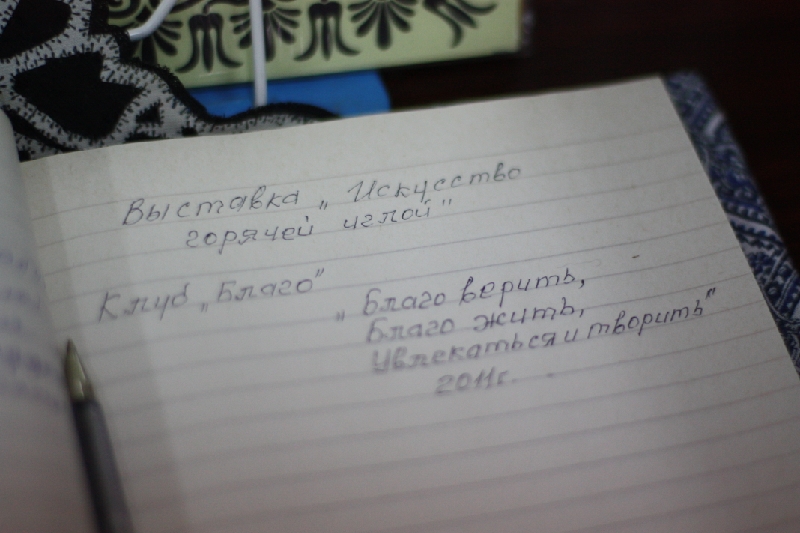 Выставка „Искусство
горячей иглой"
Клуб „Благо"
„Благо верить,
Благо жить,
Увлекаться и творить"
2011г.